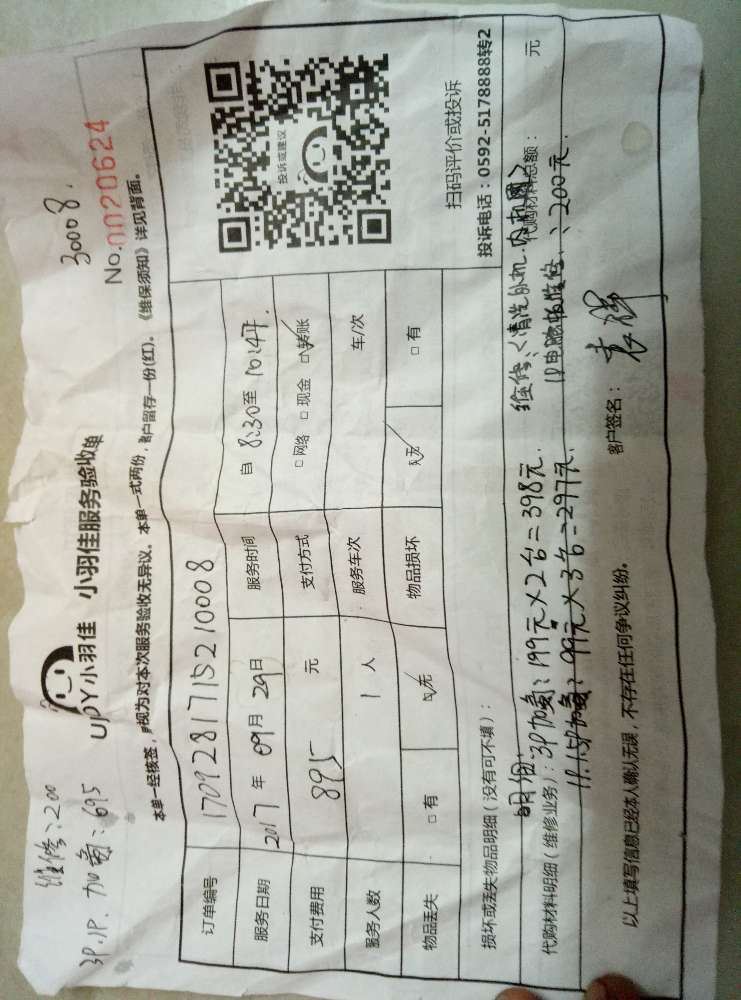 维修：200
3P.1P. 加氟：695
30008.
UJOY小羽佳 小羽佳服务验收单
No.0020624
本单一经核签，即视为对本次服务验收无异议。本单一式两份，客户留存一份(红)。《维保须知》详见背面。
订单编号 17092817115210008
服务日期 2017 年 09 月 29 日 服务时间 自 8:30 至 10:47.
支付费用 895 元 支付方式 □ 网络 □ 现金 ☑ 转账
服务人数 1 人 服务车次 车/次
物品丢失 □ 有 ☑ 无 物品损坏 ☑ 无 □ 有
投诉或建议
扫码评价或投诉
投诉电话：0592-5178888转2
损坏或丢失物品明细（没有可不填）：
明细：3P加氟：199元×2台=398元. 维修：〈清洗外机.内机
代购材料明细（维修业务）： 代购材料总额： 元
1P.1.5P加氟：99元×3台=297元. 1P电脑板维修、：200元.
以上填写信息已经本人确认无误，不存在任何争议纠纷。 客户签名：